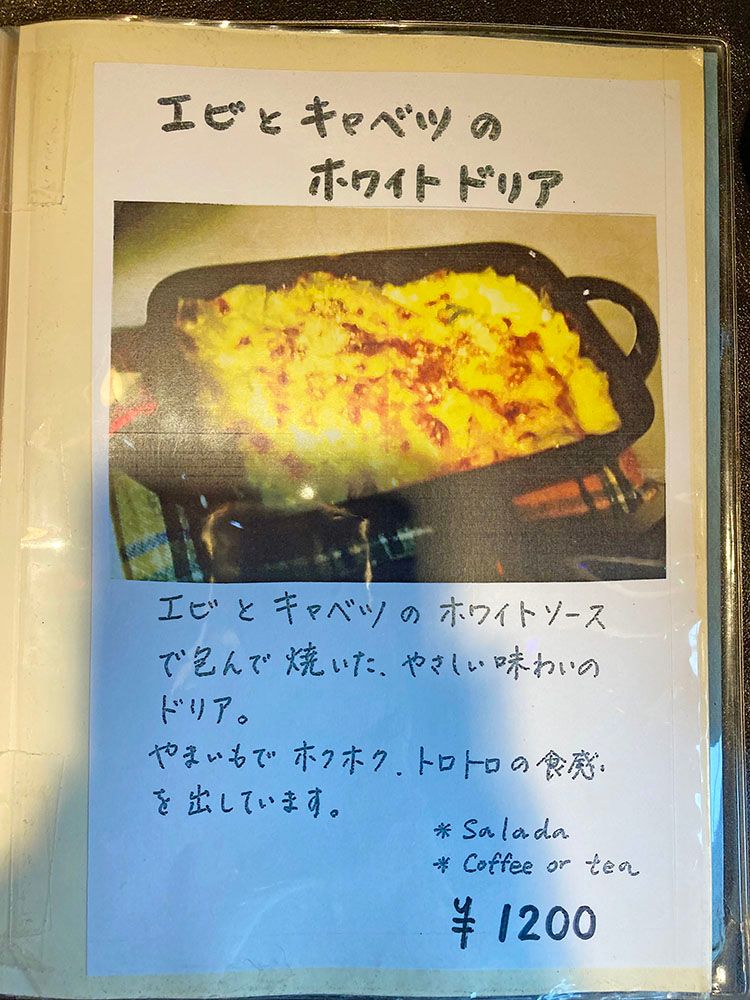 エビとキャベツの
ホワイトドリア
エビとキャベツのホワイトソース
で包んで焼いた、やさしい味わいの
ドリア。
やまいもでホクホク、トロトロの食感
を出しています。
* Salada
* Coffee or tea
¥1200